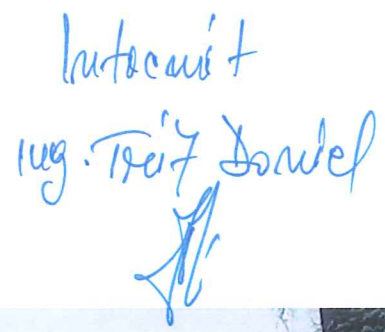 Intocmit
ing. Treif Daniel